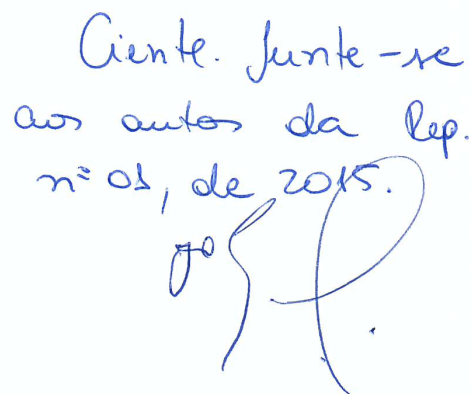 Ciente. Junte-se
aos autos da Rep.
nº 01, de 2015.